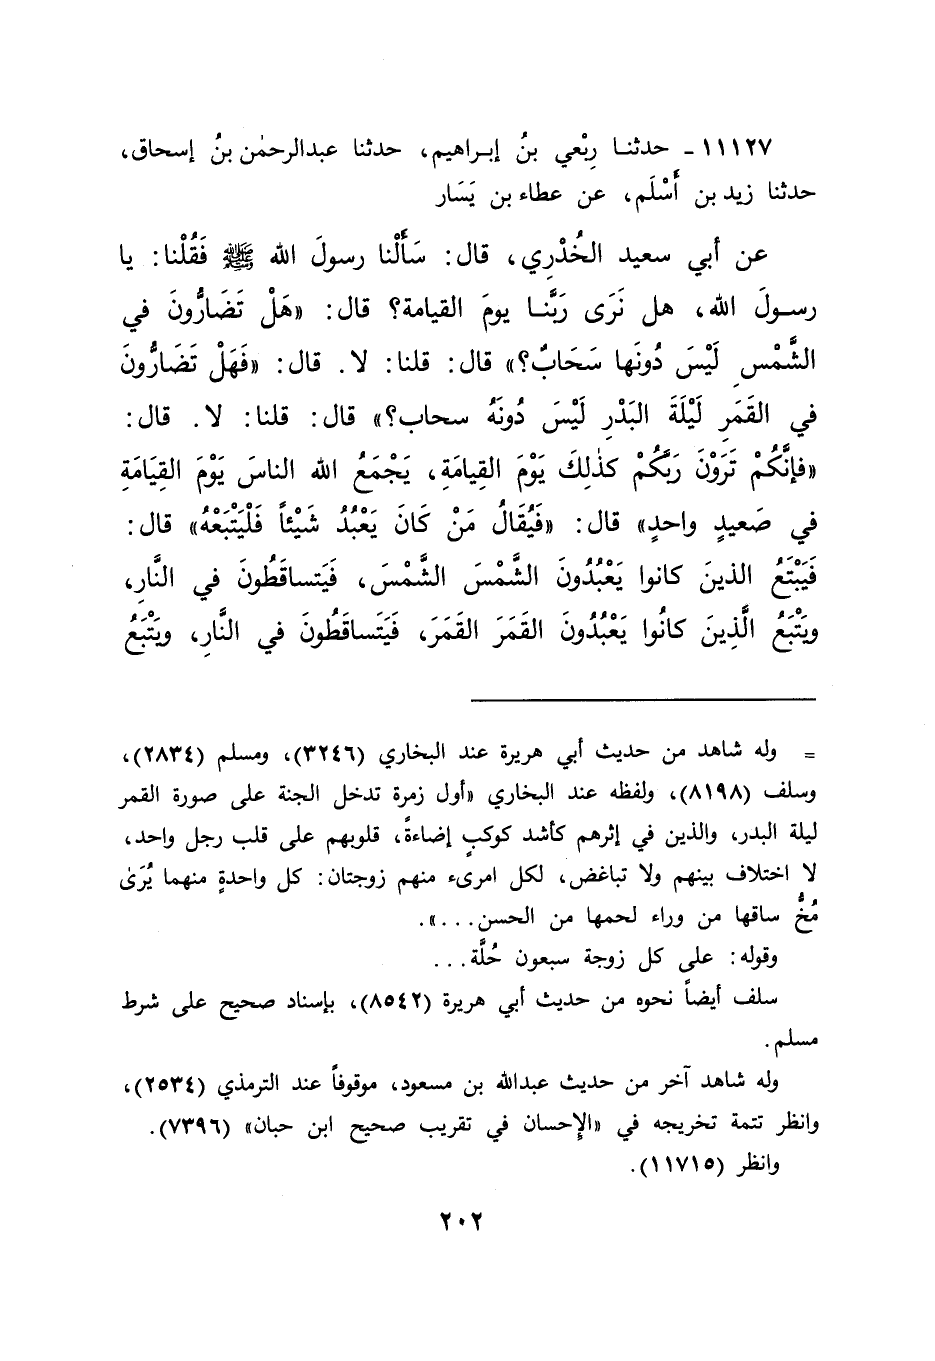 ١١١٢٧ - حدثنا رِبْعي بنُ إبراهيم، حدثنا عبدالرحمٰن بنُ إسحاق،
حدثنا زيد بن أَسْلَم، عن عطاء بن يَسَار
عن أبي سعيد الخُدْرِي، قال: سَأَلْنا رسولَ الله ﷺ فَقُلْنا: يا
رسولَ الله، هل نَرَى رَبَّنا يومَ القيامة؟ قال: «هَلْ تَضَارُّونَ في
الشَّمْسِ لَيْسَ دُونَها سَحَابٌ؟» قال: قلنا: لا. قال: «فَهَلْ تَضَارُّونَ
في القَمَرِ لَيْلَةَ البَدْرِ لَيْسَ دُونَهُ سحاب؟» قال: قلنا: لا. قال:
«فإنَّكُمْ تَرَوْنَ رَبَّكُمْ كذٰلِكَ يَوْمَ القِيامَةِ، يَجْمَعُ الله الناسَ يَوْمَ القِيَامَةِ
في صَعيدٍ واحدٍ» قال: «فَيُقَالُ مَنْ كَانَ يَعْبُدُ شَيْئاً فَلْيَتْبَعْهُ» قال:
فَيَبْتَعُ الذينَ كانوا يَعْبُدُونَ الشَّمْسَ الشَّمْسَ، فَيَتساقَطُونَ في النَّارِ،
ويَتْبَعُ الَّذِينَ كانُوا يَعْبُدُونَ القَمَرَ القَمَرَ، فَيَتَساقَطُونَ في النَّارِ، ويَتْبَعُ
= وله شاهد من حديث أبي هريرة عند البخاري (٣٢٤٦)، ومسلم (٢٨٣٤)،
وسلف (٨١٩٨)، ولفظه عند البخاري «أول زمرة تدخل الجنة على صورة القمر
ليلة البدر، والذين في إثرهم كأشد كوكبٍ إضاءةً، قلوبهم على قلب رجل واحد،
لا اختلاف بينهم ولا تباغض، لكل امرىء منهم زوجتان: كل واحدةٍ منهما يُرَىٰ
مُخُّ ساقها من وراء لحمها من الحسن...».
وقوله: على كل زوجة سبعون حُلَّة...
سلف أيضاً نحوه من حديث أبي هريرة (٨٥٤٢)، بإسناد صحيح على شرط
مسلم.
وله شاهد آخر من حديث عبدالله بن مسعود، موقوفاً عند الترمذي (٢٥٣٤)،
وانظر تتمة تخريجه في «الإحسان في تقريب صحيح ابن حبان» (٧٣٩٦).
وانظر (١١٧١٥).
٢٠٢